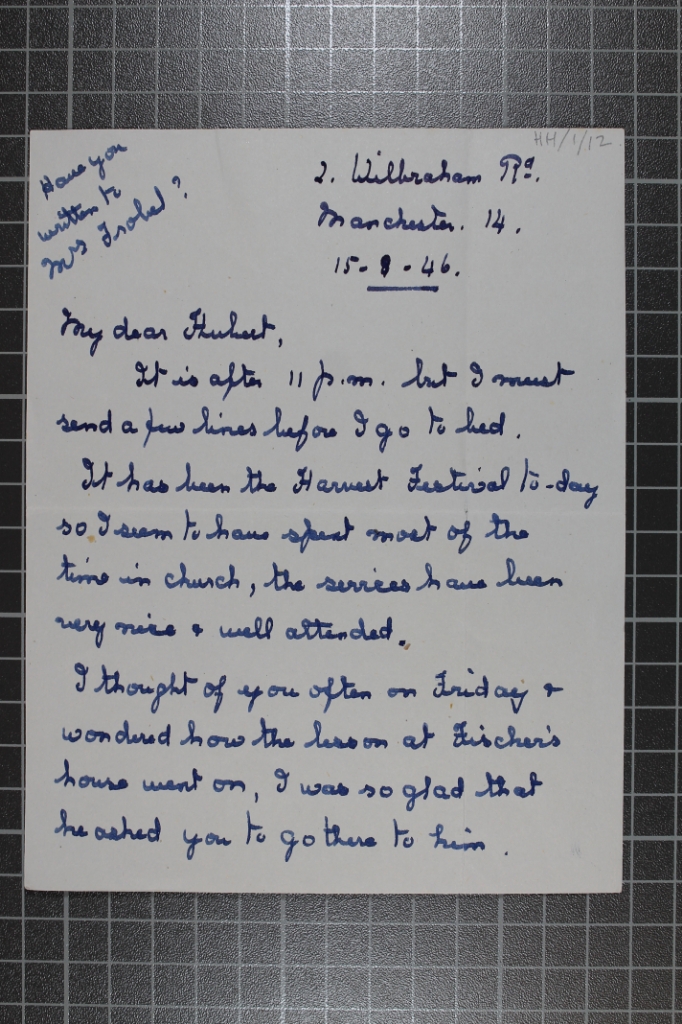 HH/1/12
Have you
written to
Mrs Isobel ?
2. Wilbraham Rd.
Manchester. 14.
15 - - 46.
My dear Hubert,
It is after 11 p.m. but I must
send a few lines before I go to bed.
It has been the Harvest Festival to-day
so I seem to have spent most of the
time in church, the services have been
very nice & well attended.
I thought of you often on Friday &
wondered how the lesson at Fischer's
house went on, I was so glad that
he asked you to go there to him.